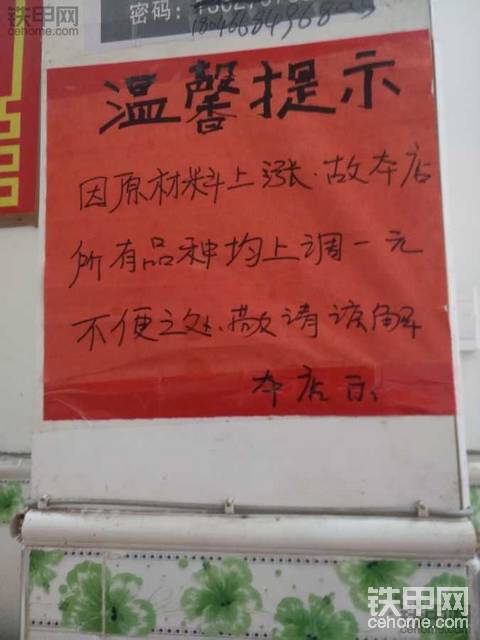 铁甲网
cehome.com
密码:
温馨提示
因原材料上涨.故本店
所有品种均上调一元
不便之处、敬请谅解
本店示
铁甲网
cehome.com